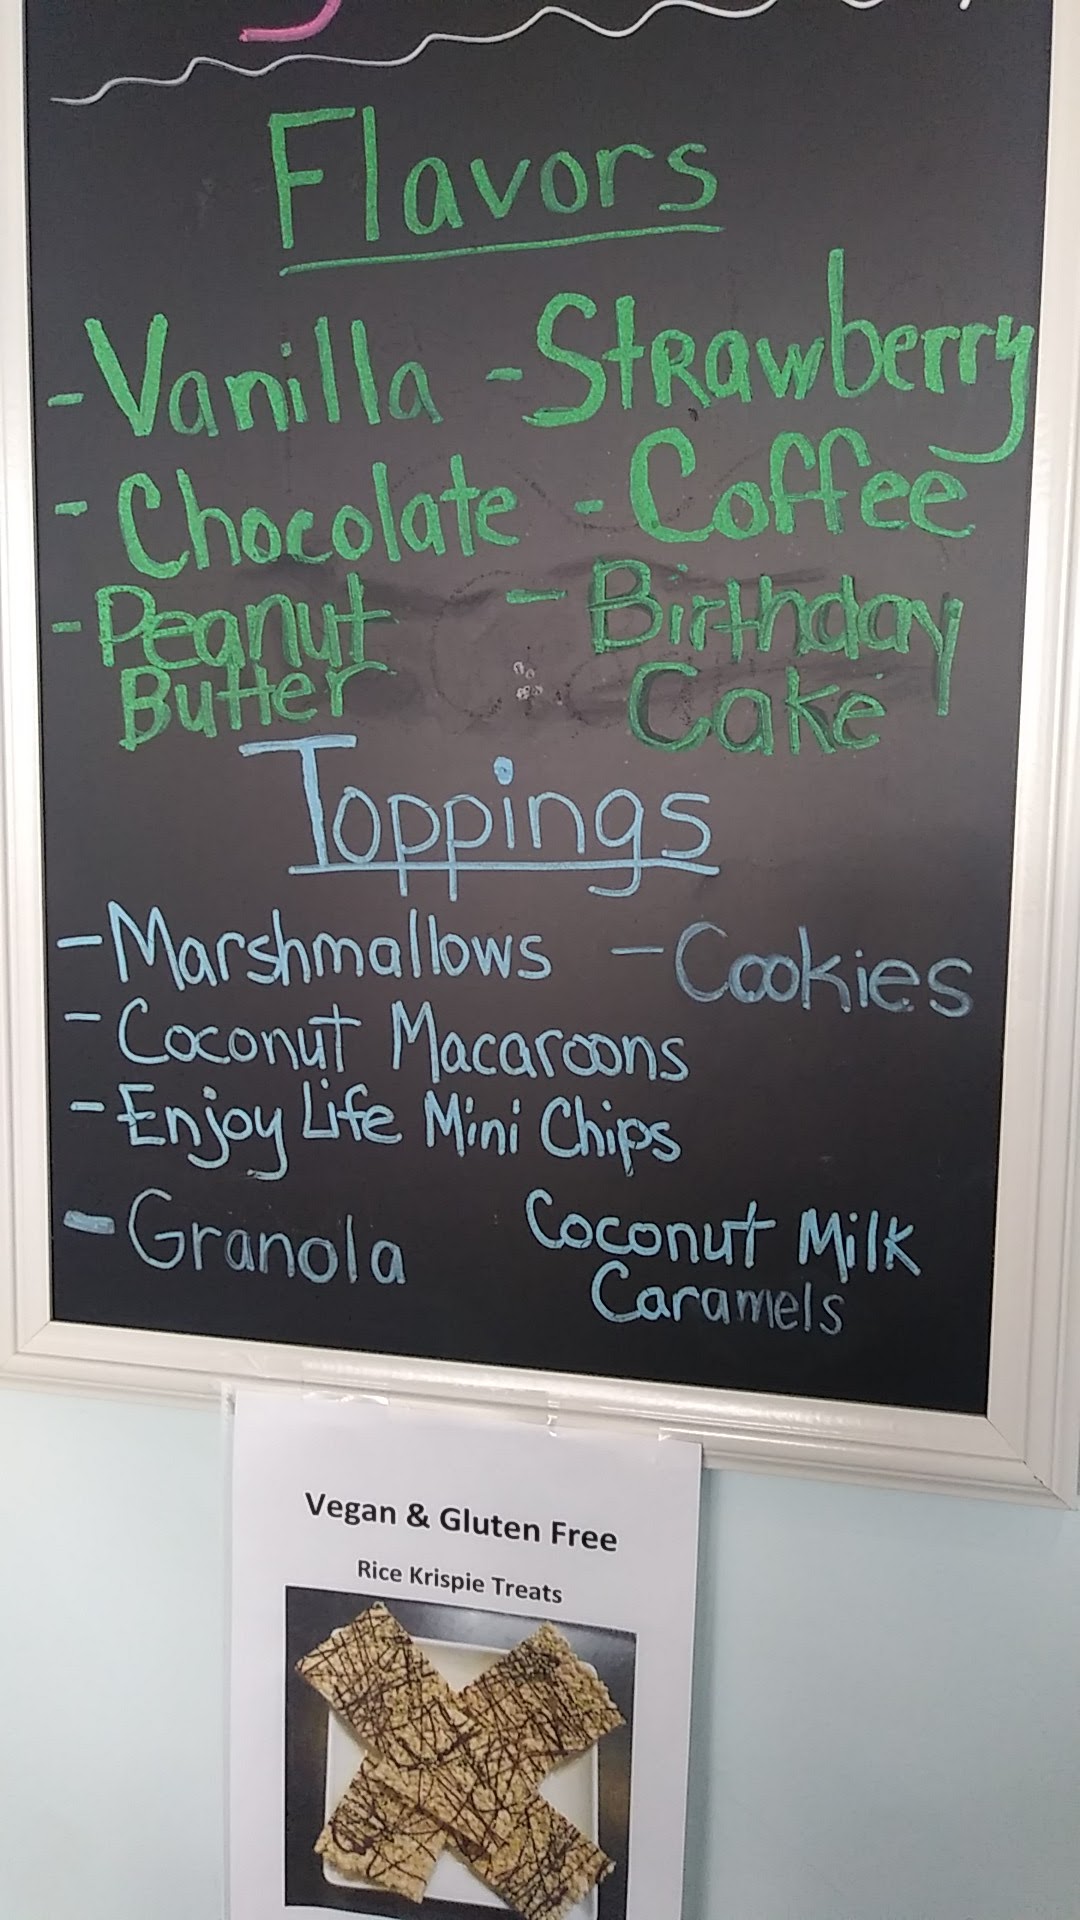 Flavors
- Vanilla - Strawberry
- Chocolate - Coffee
- Peanut Butter
- Birthday Cake
Toppings
- Marshmallows - Cookies
- Coconut Macaroons
- Enjoy Life Mini Chips
- Granola
Coconut Milk
Caramels
Vegan & Gluten Free
Rice Krispie Treats